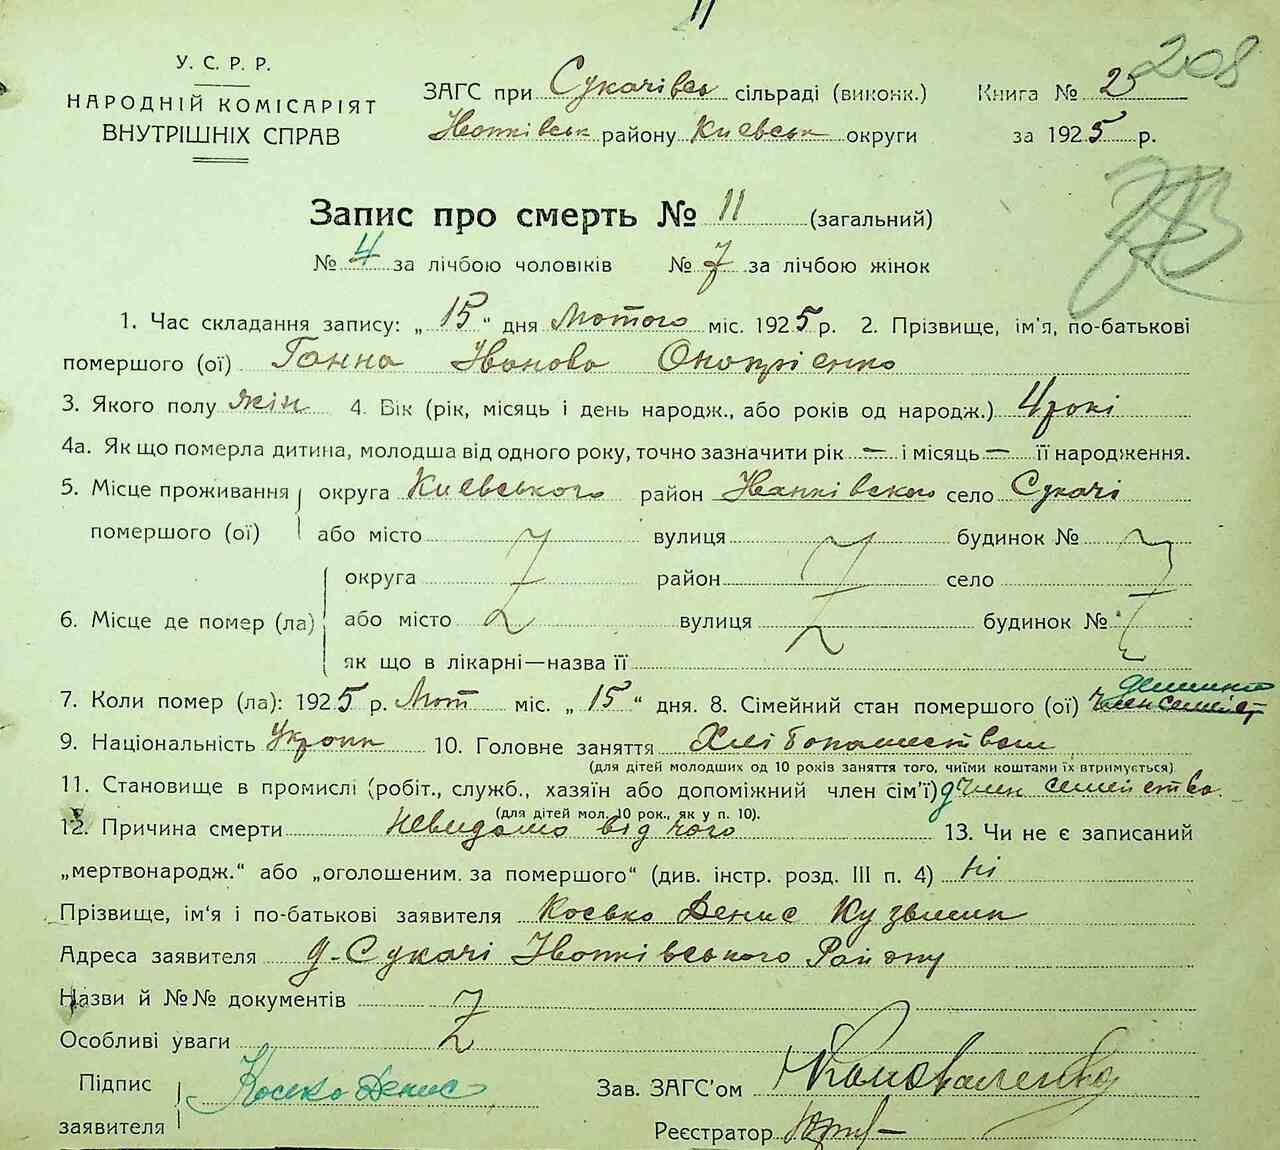 11
208
У. С. Р. Р.
НАРОДНІЙ КОМІСАРІЯТ
ВНУТРІШНІХ СПРАВ
ЗАГС при Сукачівськ сільраді (виконк.)
Іванківськ району Киевськ округи
Книга № 2
за 1925 р.
Запис про смерть № 11 (загальний)
№ 4 за лічбою чоловіків № 7 за лічбою жінок
1. Час складання запису: „ 15 “ дня Лютого міс. 1925 р. 2. Прізвище, ім'я, по-батькові
помершого (ої) Ганна Іванова Оноприенко
3. Якого полу жін 4. Вік (рік, місяць і день народж., або років од народж.) 4 рокі
4а. Як що померла дитина, молодша від одного року, точно зазначити рік — і місяць — її народження.
5. Місце проживання помершого (ої) округа Киевського район Іванківского село Сукачі
або місто вулиця будинок №
6. Місце де помер (ла) округа район село
або місто вулиця будинок №
як що в лікарні—назва її
7. Коли помер (ла): 1925 р. Лют міс. „ 15 “ дня. 8. Сімейний стан помершого (ої)
9. Національність Украин 10. Головне заняття Хлібопашеством
(для дітей молодших од 10 років заняття того, чиїми коштами їх втримується)
11. Становище в промислі (робіт., служб., хазяїн або допоміжний член сім'ї) член семейства
(для дітей мол. 10 рок., як у п. 10).
12. Причина смерти невидомо від чого 13. Чи не є записаний
„мертвонародж.“ або „оголошеним за помершого“ (див. інстр. розд. III п. 4) ні
Прізвище, ім'я і по-батькові заявителя Косько Денис Кузьмин
Адреса заявителя д-Сукачі Іванківського Району
Назви й №№ документів
Особливі уваги
Підпис заявителя Косько Денис
Зав. ЗАГС'ом Коноваленко
Реєстратор